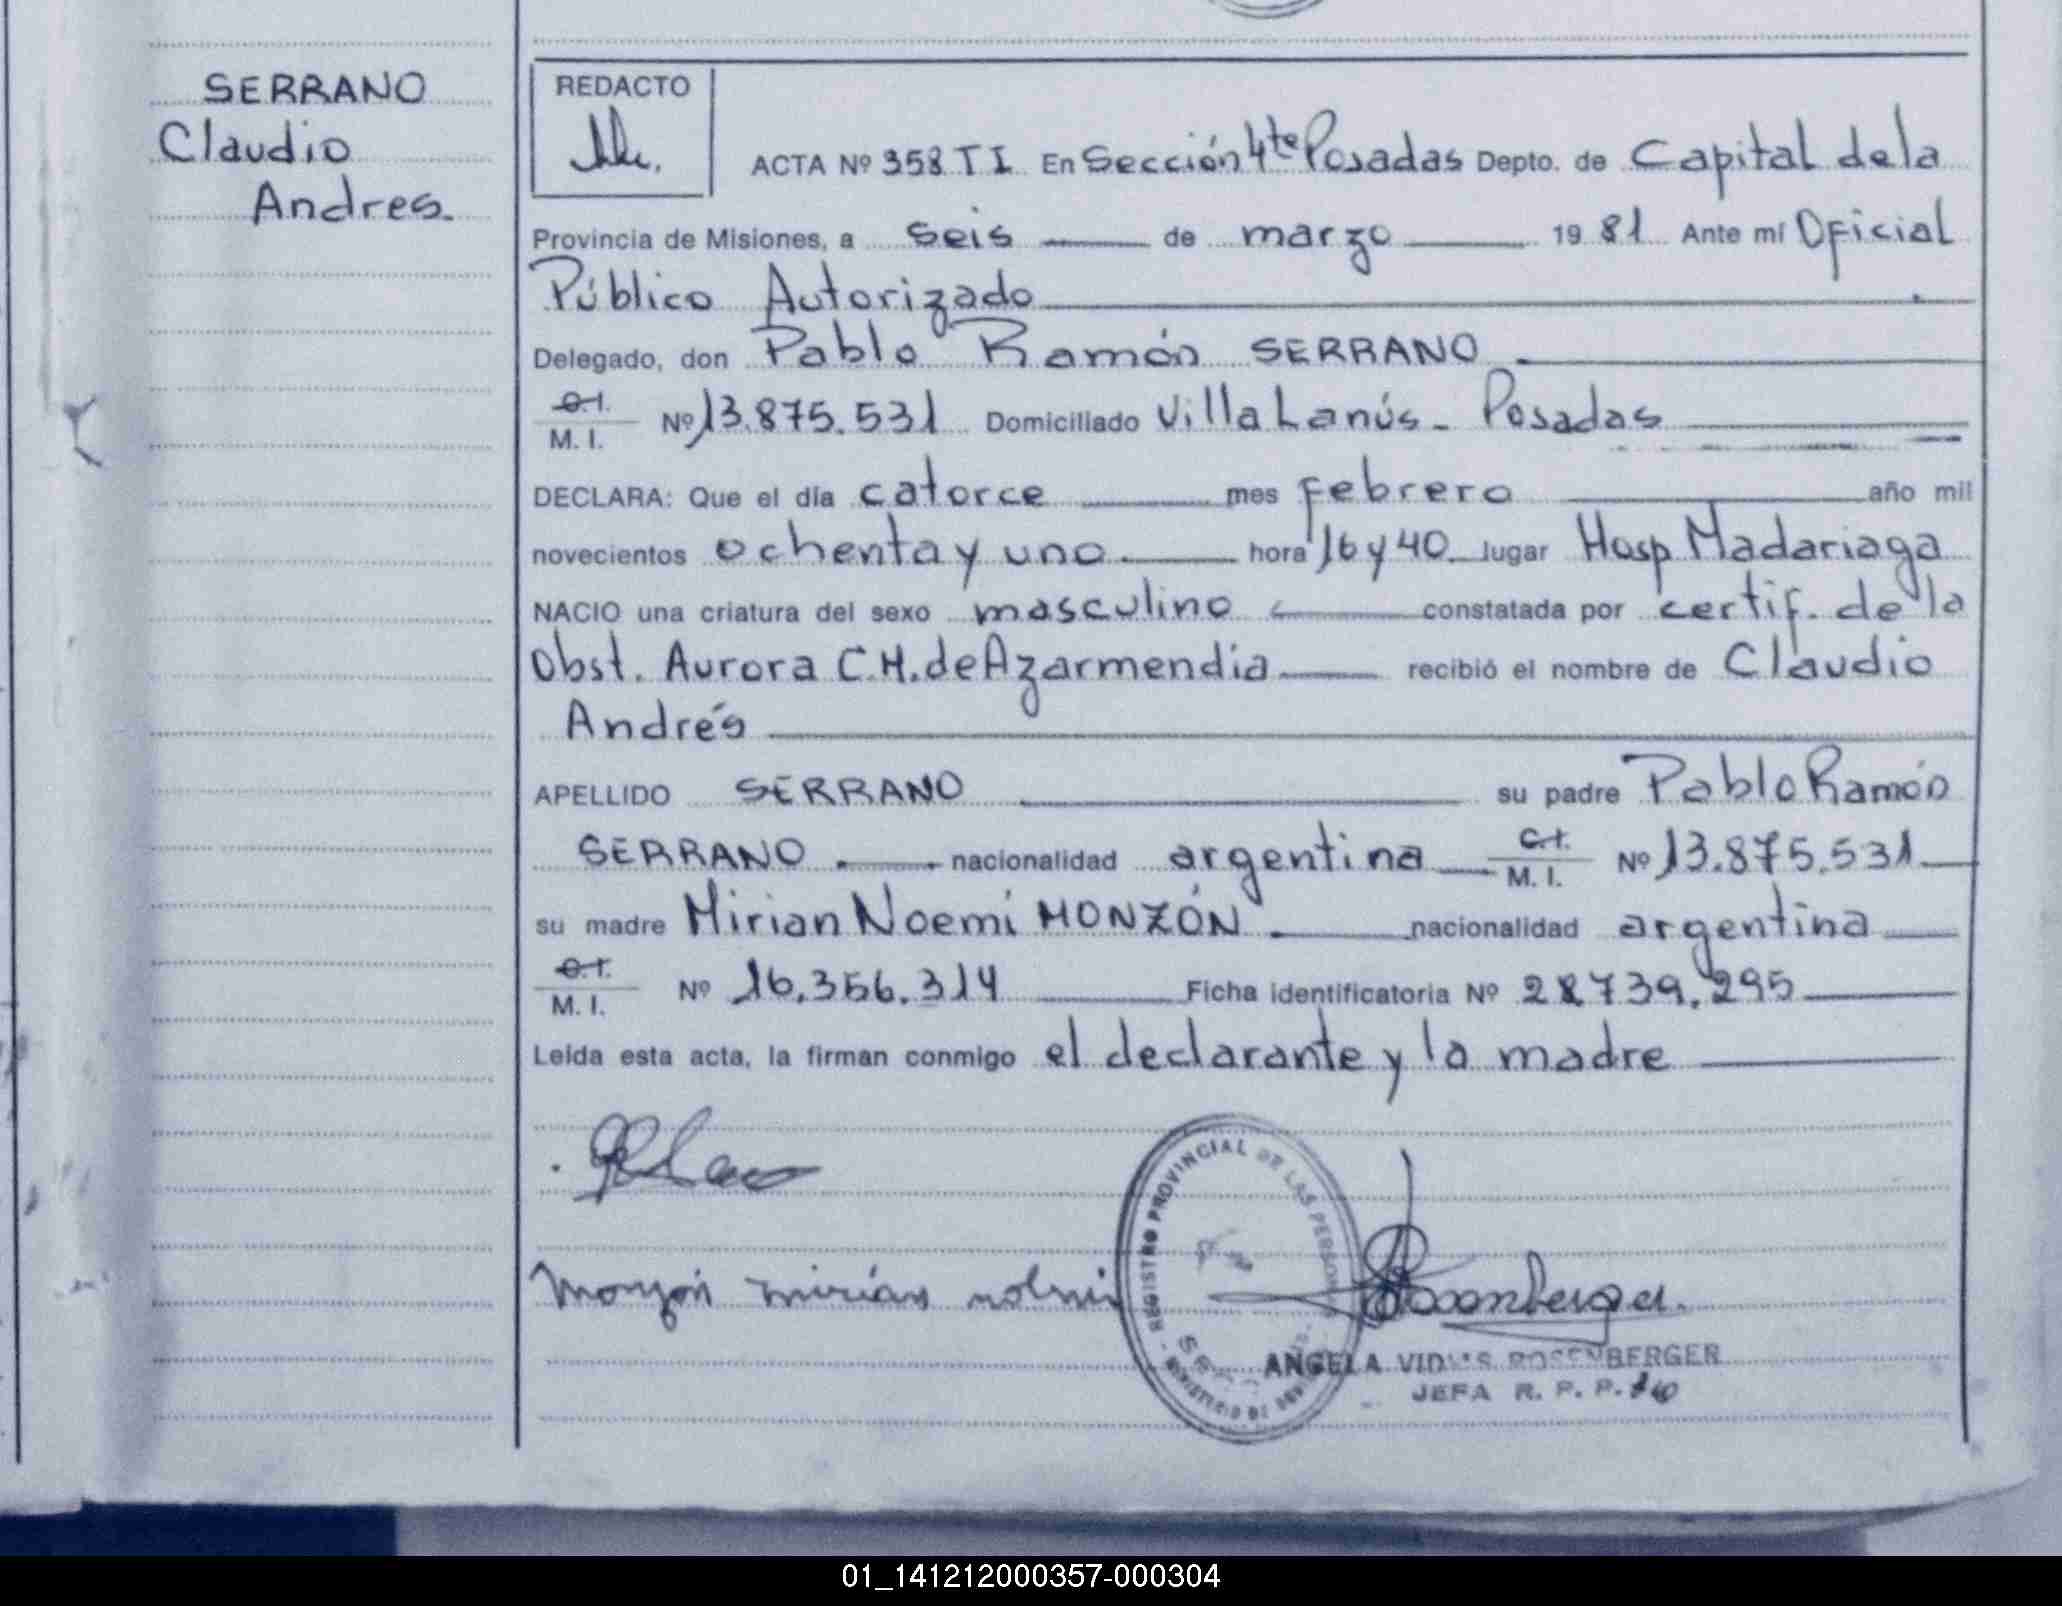 SERRANO
Claudio
Andres.
REDACTO
ACTA Nº 358 T I En Sección 4te Posadas Depto. de Capital de la
Provincia de Misiones, a seis de marzo 19 81 Ante mí Oficial
Público Autorizado
Delegado, don Pablo Ramón SERRANO
C.I.
M. I. Nº 13.875.531 Domiciliado Villa Lanús - Posadas
DECLARA: Que el día catorce mes febrero año mil
novecientos ochenta y uno hora 16 y 40 lugar Hosp Madariaga
NACIO una criatura del sexo masculino constatada por certif. de la
Obst. Aurora C.H. de Azarmendia recibió el nombre de Claudio
Andrés
APELLIDO SERRANO su padre Pablo Ramón
SERRANO nacionalidad argentina C.I. M. I. Nº 13.875.531
su madre Mirian Noemí MONZÓN nacionalidad argentina
C.I.
M. I. Nº 16.356.314 Ficha identificatoria Nº 28739.295
Leída esta acta, la firman conmigo el declarante y la madre
REGISTRO PROVINCIAL DE LAS PERSONAS
Monzón Mirián Noemi
Rosenberger.
MINISTERIO DE
ANGELA ROSENBERGER
JEFA R. P. P.
01_141212000357-000304